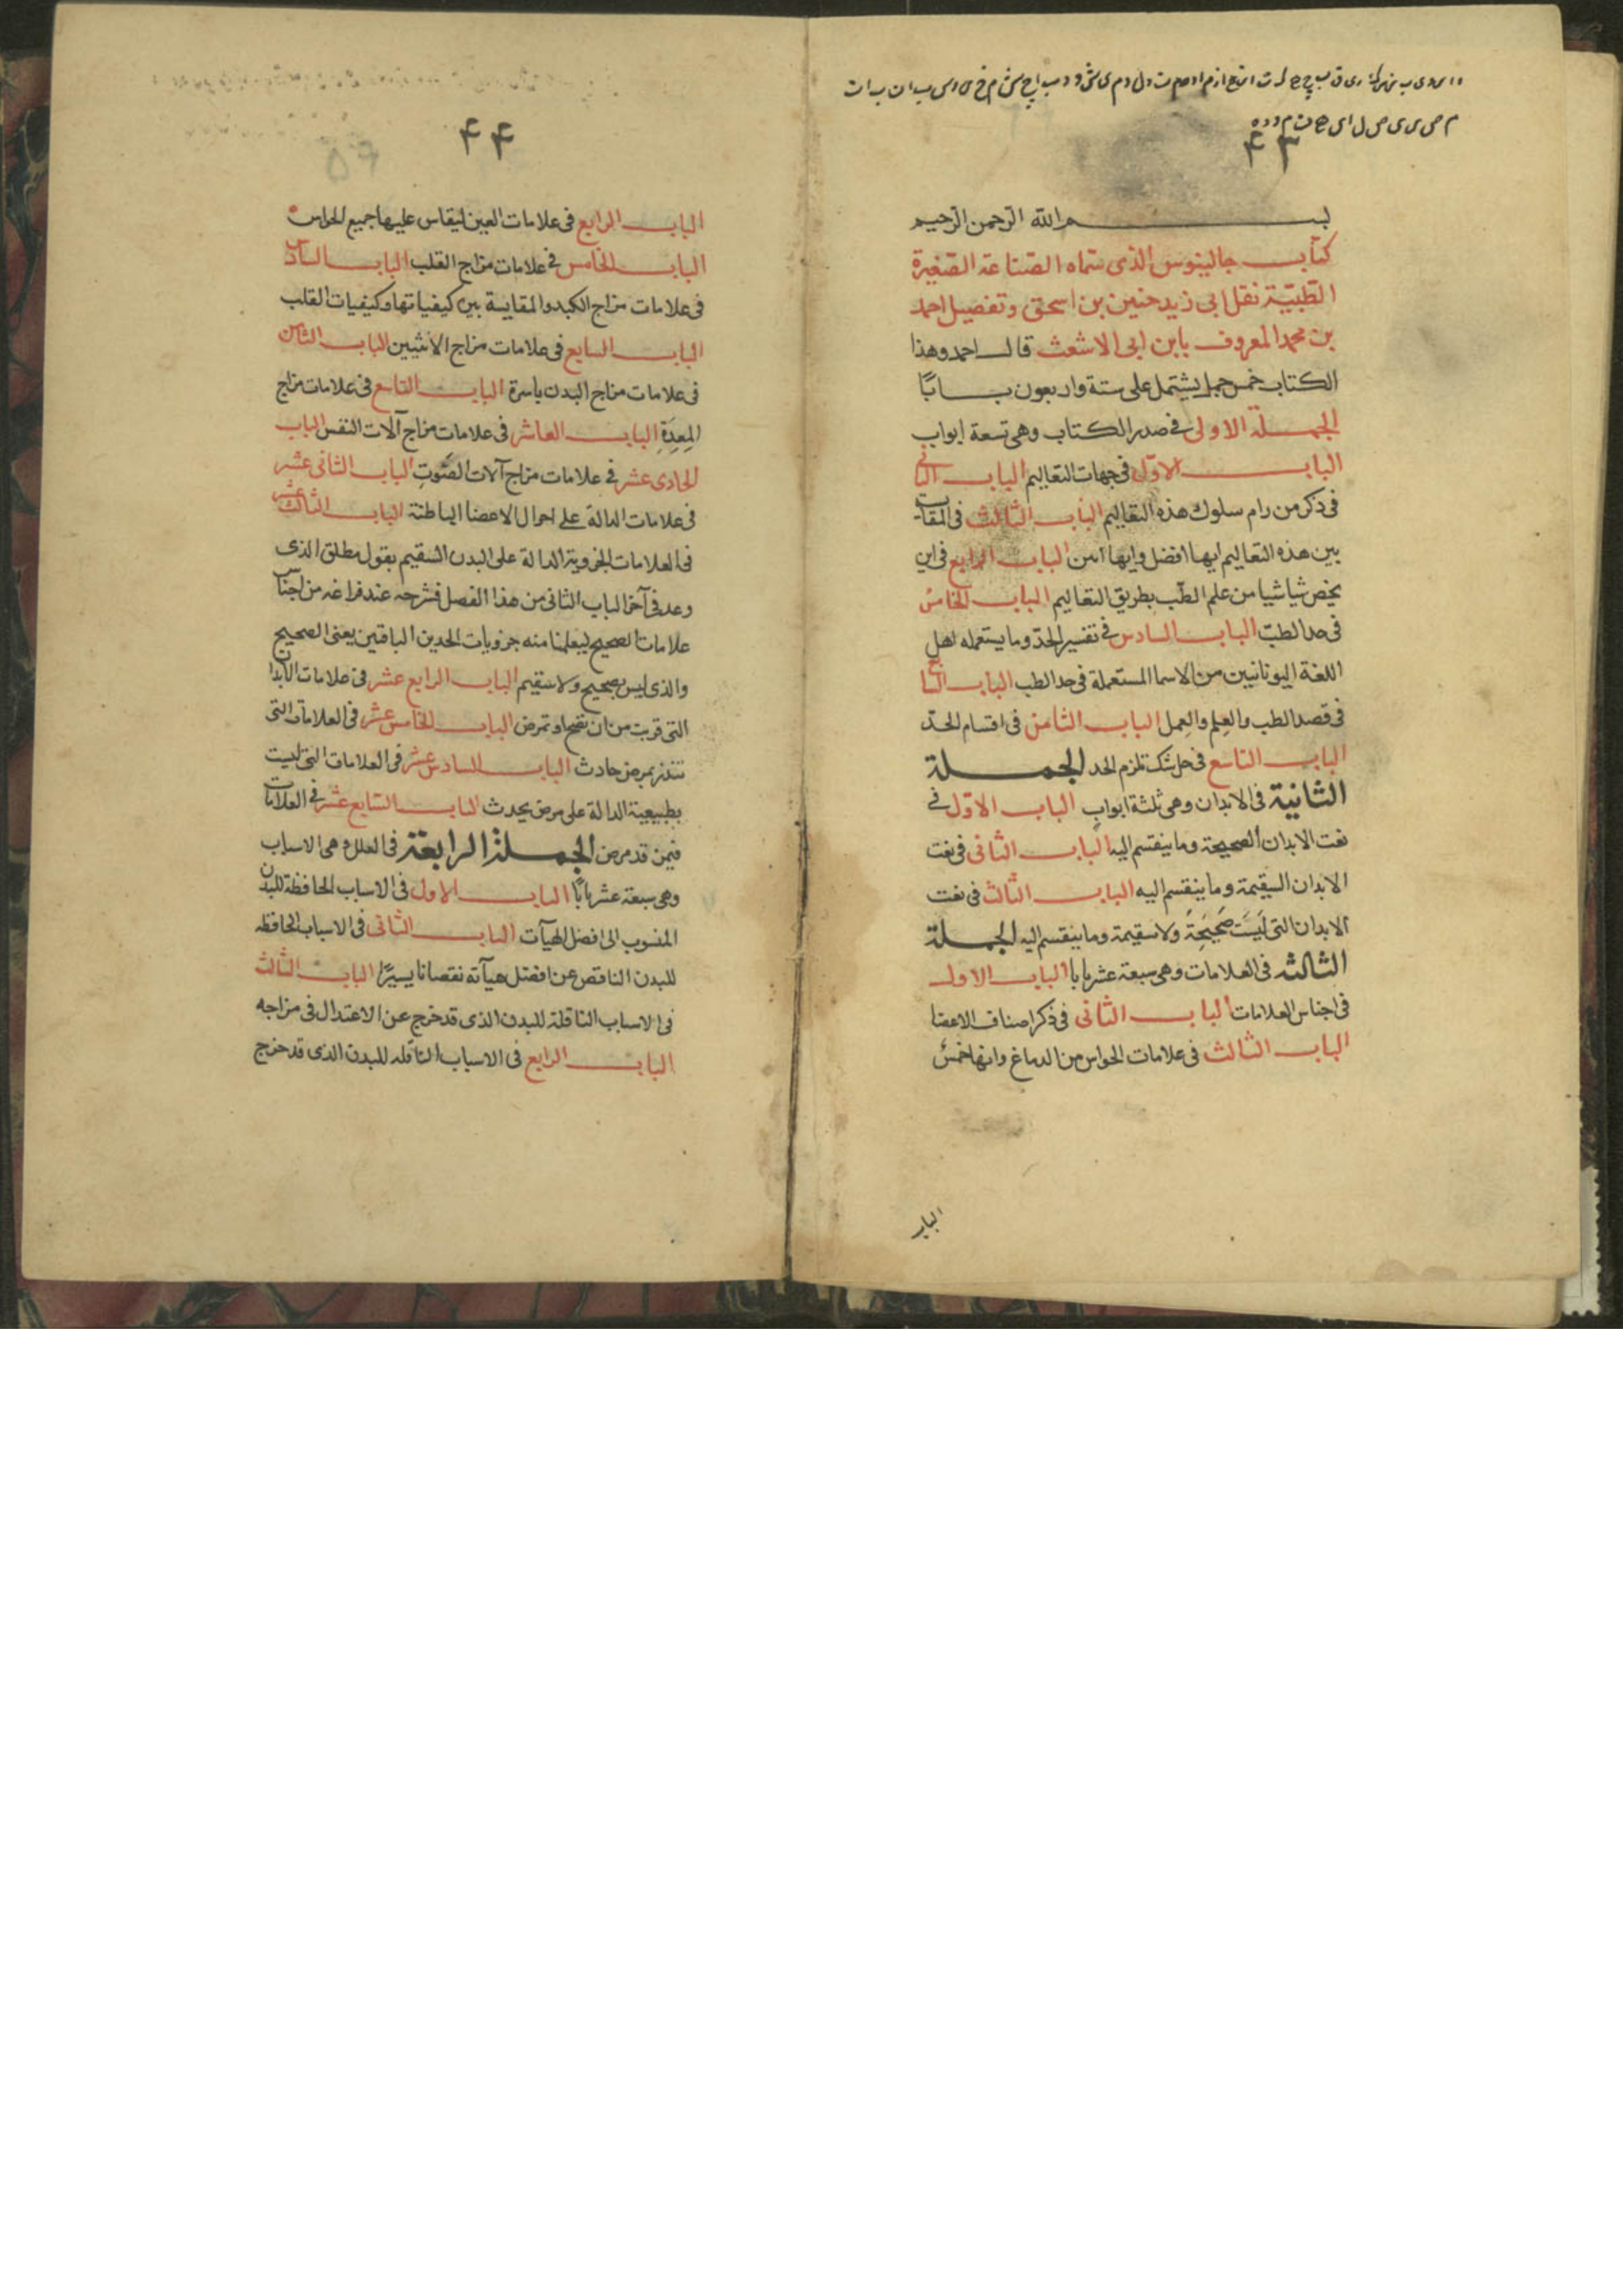 ٤٣
بسم الله الرحمن الرحيم
كتاب جالينوس الذى سماه الصناعة الصغيرة
الطبية نقل ابى زيد حنين بن اسحق وتفصيل احمد
بن محمد المعروف بابن ابى الاشعث قال احمد وهذا
الكتاب خمس جمل يشتمل على ستة واربعون بابًا
الجملة الاولى فى صدر الكتاب وهى تسعة ابواب
الباب الاوّل فى جهات التعاليم الباب الثانى
فى ذكر من رام سلوك هذه التعاليم الباب الثالث فى المقايسة
بين هذه التعاليم ايها افضل وايها الباب الرابع فى اين
يخص شيا شيا من علم الطّب بطريق التعاليم الباب الخامس
فى حد الطبّ الباب السادس فى تفسير الحدّ وما يستعمله اهل
اللغة اليونانيين من الاسما المستعملة فى حد الطب الباب السابع
فى قصد الطب والعِلم والعِمل الباب الثامن فى اقسام الحدّ
الباب التاسع فى حل شك تلزم الحد الجملة
الثانية فى الابدان وهى ثلثة ابواب الباب الاوّل فى
نعت الابدان الصحيحة وما ينقسم اليه الباب الثانى فى نعت
الابدان السقيمة وما ينقسم اليه الباب الثالث فى نعت
الابدان التى لَيسَت صَحِيحَةً ولا سقيمة وما ينقسم اليه الجملة
الثالثه فى العلامات وهى سبعة عشر بابا الباب الاول
فى اجناس العلامات الباب الثانى فى ذكر اصناف الاعضا
الباب الثالث فى علامات الحواس من الدماغ وانها خمس
الباب
٤٤
٥٦
الباب الرابع فى علامات العين ليقاس عليها جميع الحواس
الباب الخامس فى علامات مزاج القلب الباب السادس
فى علامات مزاج الكبد والمقايسة بين كيفياتها وكيفيات القلب
الباب السابع فى علامات مزاج الانثيين الباب الثامن
فى علامات مزاج البدن باسرة الباب التاسع فى علامات مزاج
المِعِدَةِ الباب العاشر فى علامات مزاج آلات النفس الباب
الحادى عشر فى علامات مزاج آلات الصَّوتِ الباب الثانى عشر
فى علامات الدالة على احوال الاعضا الباطنة الباب الثالث عشر
فى العلامات الجزوية الدالة على البدن السقيم بقول مطلق الذى
وعد فى آخر الباب الثانى من هذا الفصل فشرحه عند فراغه من اجناس
علامات الصحيح ليعلمنا منه جزويات الحدين الباقيين يعنى الصحيح
والذى ليس بصحيح ولا سقيم الباب الرابع عشر فى علامات الابدان
التى قربت من ان تصح او تمرض الباب الخامس عشر فى العلامات التى
تنذر بمرض حادث الباب السادس عشر فى العلامات التى ليست
بطبيعية الدالة على مرض يحدث الباب السابع عشر فى العلامات
فيمن قد مرض الجملة الرابعة فى العلل وهى الاسباب
وهى سبعة عشر بابًا الباب الاول فى الاسباب الحافظة للبدن
المنسوب الى افضل الهيآت الباب الثانى فى الاسباب الحافظه
للبدن الناقص عن افضل هيآته نقصانا يسيرًا الباب الثالث
فى الاسباب الناقلة للبدن الذى قد خرج عن الاعتدال فى مزاجه
الباب الرابع فى الاسباب الناقله للبدن الذى قد خرج